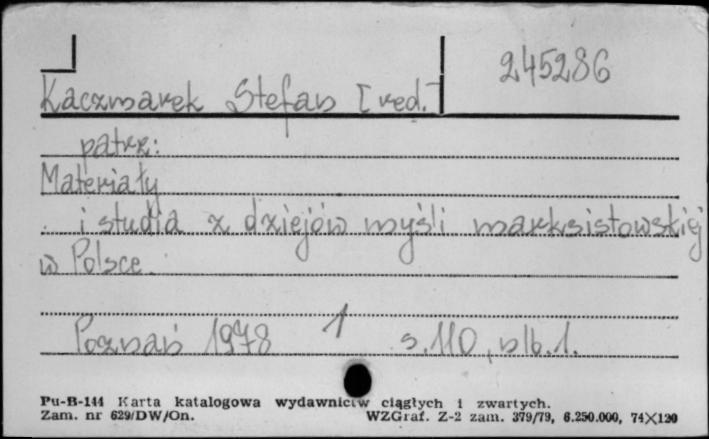 245286
Kaczmarek Stefan [red.]
patrz:
Materiały
i studia z dziejów myśli marksistowskiej
w Polsce.
Poznań 1978 1 s. 110, nlb. 1.
Pu-B-144 Karta katalogowa wydawnictw ciągłych i zwartych.
Zam. nr 629/DW/On. WZGraf. Z-2 zam. 379/79, 6.250.000, 74X120